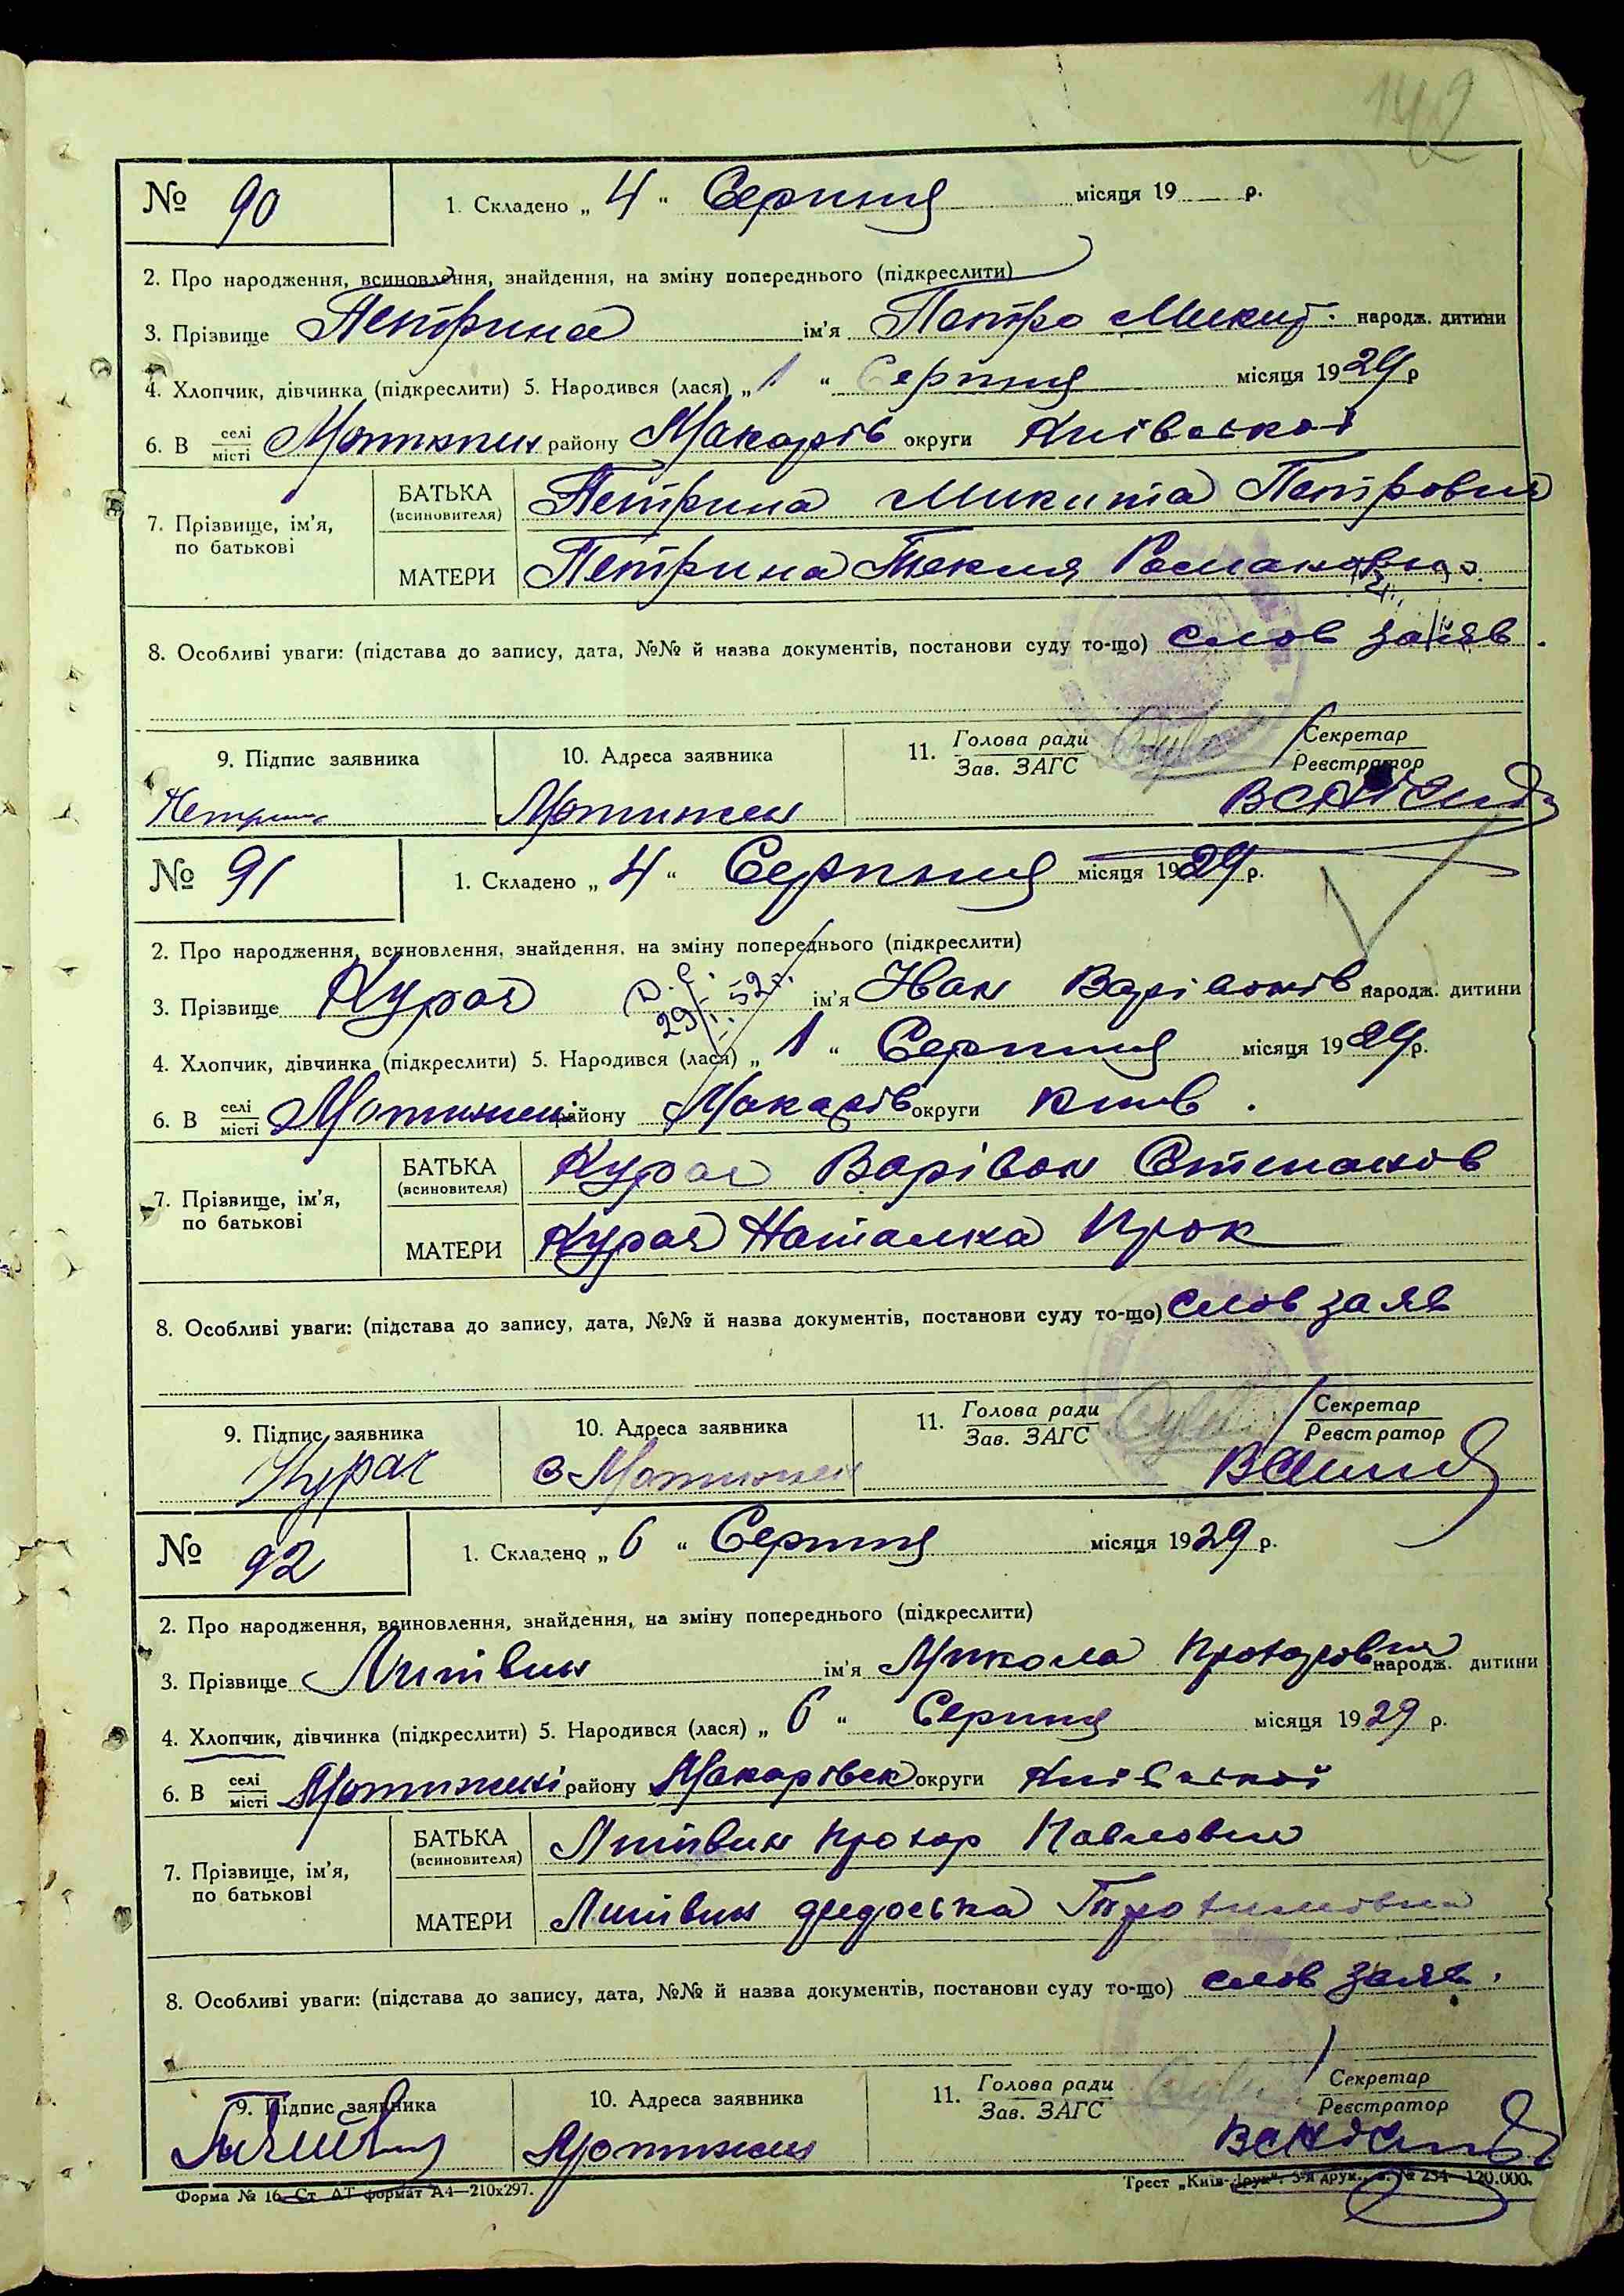 142
№ 90 1. Складено „ 4 “ Серпня місяця 19 р.
2. Про народження, всиновлення, знайдення, на зміну попереднього (підкреслити)
3. Прізвище Петрина ім’я Петро Микит. народж. дитини
4. Хлопчик, дівчинка (підкреслити) 5. Народився (лася) „ 1 “ Серпня місяця 1929 р
6. В селі місті Мотижин району Макарів округи Київської
7. Прізвище, ім’я, по батькові
БАТЬКА (всиновителя) Петрина Микита Петрович
МАТЕРИ Петрина Текля Романовна
8. Особливі уваги: (підстава до запису, дата, №№ й назва документів, постанови суду то-що) слов заяв.
9. Підпис заявника 10. Адреса заявника 11. Голова ради Зав. ЗАГС Секретар Реєстратор
Петрина Мотижин
№ 91 1. Складено „ 4 “ Серпня місяця 1929 р.
2. Про народження, всиновлення, знайдення, на зміну попереднього (підкреслити)
3. Прізвище Курач ім’я Іван Варівонів народж. дитини
29/ 52 г.
4. Хлопчик, дівчинка (підкреслити) 5. Народився (лася) „ 1 “ Серпня місяця 1929 р.
6. В селі місті Мотижині району Макарів округи Київ.
7. Прізвище, ім’я, по батькові
БАТЬКА (всиновителя) Курач Варівон Степанов
МАТЕРИ Курач Наталка Прок
8. Особливі уваги: (підстава до запису, дата, №№ й назва документів, постанови суду то-що) слов заяв
9. Підпис заявника 10. Адреса заявника 11. Голова ради Зав. ЗАГС Секретар Реєстратор
Курач с Мотижин
№ 92 1. Складено „ 6 “ Серпня місяця 1929 р.
2. Про народження, всиновлення, знайдення, на зміну попереднього (підкреслити)
3. Прізвище Литвин ім’я Микола Прохорович народж. дитини
4. Хлопчик, дівчинка (підкреслити) 5. Народився (лася) „ 6 “ Серпня місяця 1929 р.
6. В селі місті Мотижині району Макарівск округи Київської
7. Прізвище, ім’я, по батькові
БАТЬКА (всиновителя) Литвин Прохор Павлович
МАТЕРИ Литвин Федоська Трохимовна
8. Особливі уваги: (підстава до запису, дата, №№ й назва документів, постанови суду то-що) слов заяв.
9. Підпис заявника 10. Адреса заявника 11. Голова ради Зав. ЗАГС Секретар Реєстратор
Мотижин
Форма № 16. Ст. АТ формат А4—210х297. Трест „Київ-Друк“. 5-а друк. № 254—120.000.